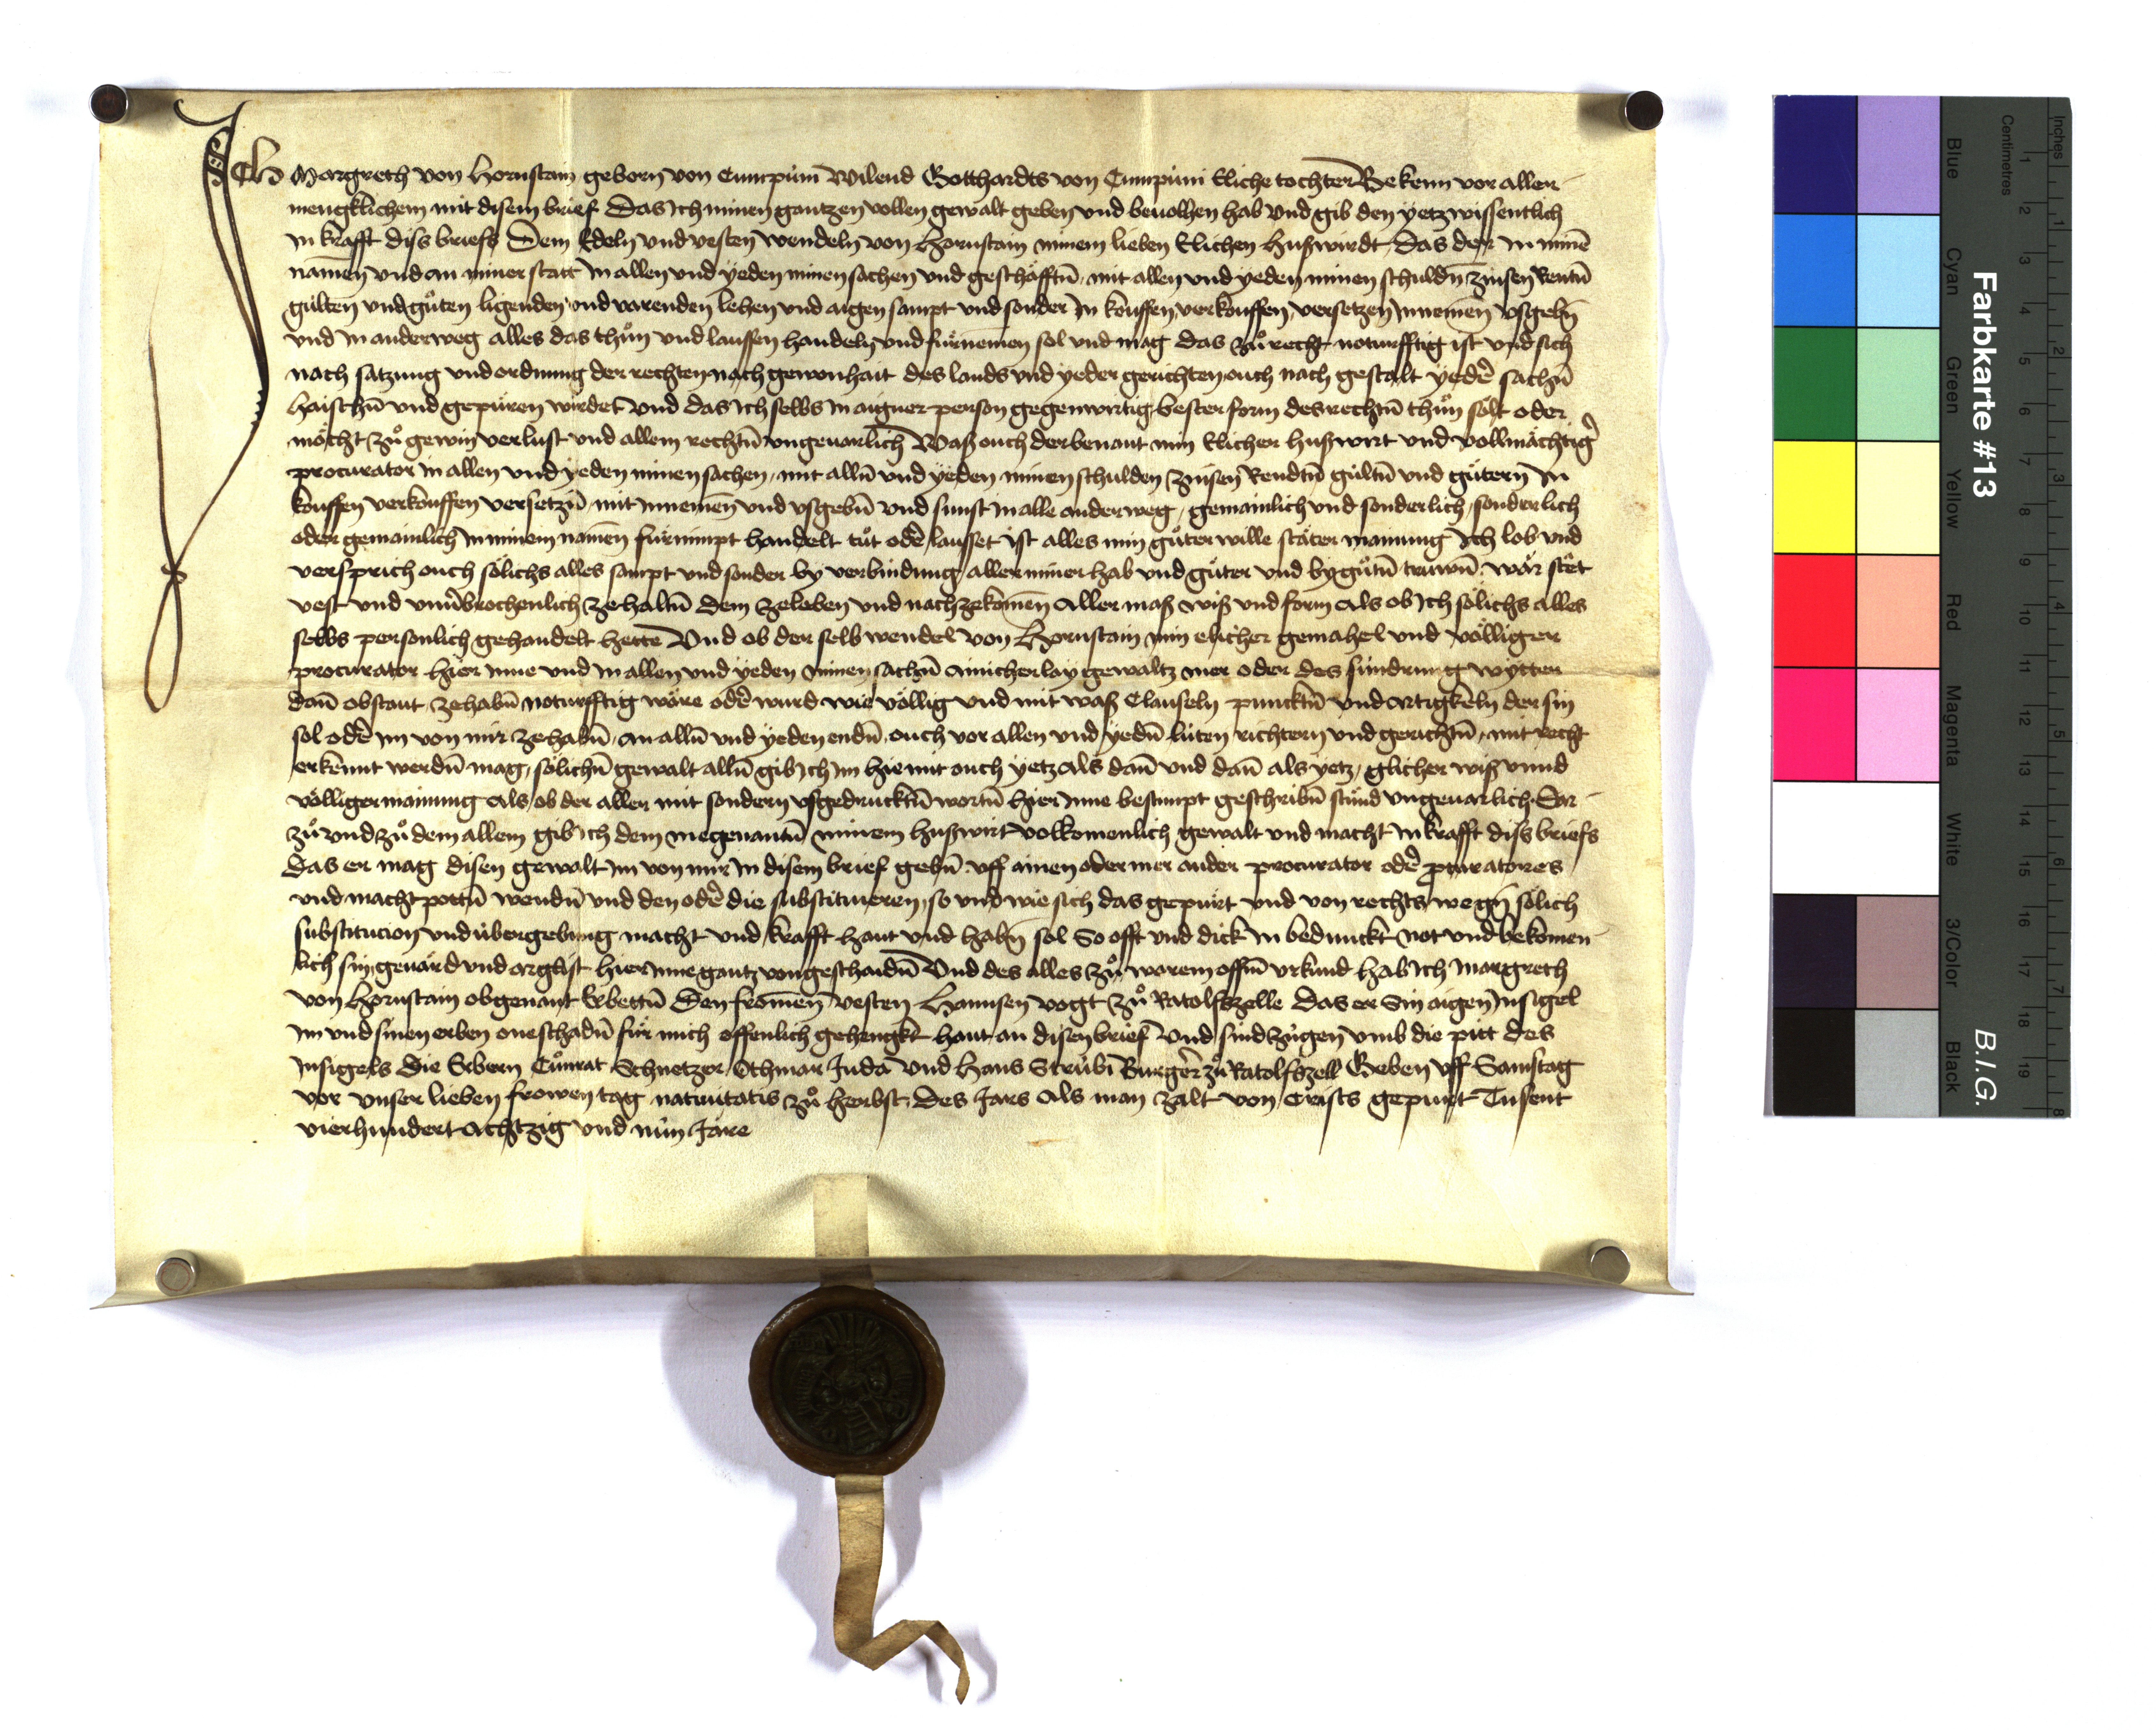 Ich Margreth von Hornstain geborn von Cumpüm Wilend Gotthardts von Cumpüm Eliche tochter Bekenn vor allen
mengklichem mit disem brief Das Ich minen gantzen vollen gewalt geben vnd beuolhen hab vnd gib den yetz wissentlich
In krafft diſs briefs Dem Edeln vnd vesten Wendeln von Hornstain minem lieben Elichen hußwirdt, Das der In minē
namen vnd an miner statt In allen vnd yeden minen sachen vnd geschäfftn̄, mit allen vnd yeden minen schuldn̄ zinsen Rentn̄
gülten vnd gůten ligenden vnd varenden lehen vnd aigen sampt vnd sonder In kouffen, verkouffen, versetzen Innemen vsgebn̄
vnd In anderweg alles das thůn vnd laussen handeln vnd fürnemen sol vnd mag das zů recht noturfftig ist vnd sich
nach satzung vnd ordnung der rechten nach gewonhait des lands vnd yeder gerichten ouch nach gestalt yedē sachn̄
haischn̄ vnd gepüren wirdet vnd das Ich selbs In aigner person gegenwirtig bester form des rechtn̄ thůn sölt oder
möcht zů gewin verlust vnd allem rechtn̄ vngeuarlich Waß ouch der benant min Elicher hußwirt vnd vollmächtigꝰ
procurator In allen vnd yeden minen sachen, mit alln̄ vnd yeden minen schulden zinsen Rendtn̄ gültn̄ vnd gütern In
kouffen verkouffen versetzn̄, mit Innemen vnd vsgebn̄ vnd sunst In alle anderweg, gemainlich vnd sonderlich, sonderlich
oder gemainlich In minem namen fürnimpt handelt tůt odē lausset ist alles min gůter wille stäter mainung Ich lob vnd
versprich ouch sölichs alles sampt vnd sonder by verbindung aller miner hab vnd gůter vnd by gůtn̄ truwn̄ wär stět
vest vnd vnuerbrochenlich ze haltn̄ dem ze leben vnd nachzekomen Aller maß wiß vnd form Als ob Ich sölichs alles
selbs personlich gehandelt hette Vnd ob der selb Wendel von Hornstain min elicher gemahel vnd völliger
procurator hier Inne vnd In allen vnd yeden minen sachn̄ ainicherlay gewaltz mer oder des sundrung wytter
dan̄ obstaut ze habn̄ noturfftig wäre odē wurd wie völlig vnd mit waß Clauseln puncktn̄ vnd artigkeln der sin
sol odē Im von mir ze habn̄, an alln̄ vnd yeden endn̄, ouch vor allen vnd yedn̄ lüten richtern vnd gerichtn̄, mit recht
erkennt werdn̄ mag, sölichn̄ gewalt alln̄ gib Ich Im hiemit ouch yetz Als dan̄ vnd dan̄ als yetz, glicher wiß vnnd
völliger mainung Als ob der aller mit sondern vsgedrucktn̄ wortn̄ hier Inne bestimpt geschribn̄ stünd vngeuarlich. Dar
zů vnd zů dem allem gib Ich dem megenantn̄ minem hußwirt volkomenlich gewalt vnd macht In krafft diſs briefs
Das er mag disen gewalt Im von mir In disem brief gebn̄ vff ainen oder mer ander procurator odē ꝓcuratores
vnd machtpottn̄ wendn̄ vnd den odē die substituieren, so vnd wie sich das gepürt vnd von rechts wegn̄ sölich
substitucion vnd übergebung macht vnd krafft haut vnd habn̄ sol So offt vnd dick In bedunckt not vnd bekomen
lich sin, geuärd vnd arglist hier Inne gantz vsgeschaidn̄ Vnd des alles zů warem offn̄ vrkund hab Ich Margreth
von Hornstain obgenant Erbettn̄ Den fromen vesten Hannsen vogt zů Ratolfszelle Das er Sin aigen Insigel
Im vnd sinen erben oneschadn̄ für mich offenlich gehengkt haut an disen brief Vnd sind zügen vmb die pitt des
Insigels Die Erbern Cůnrat Schnetzer Othmar Juda vnd Hans Strübi Burger zů Ratolfszell Geben vff Samstag
vor vnser lieben frowen tag natiuitatis zů herbst, Des Jars Als man zalt von Crists gepurt Tusent
vierhundert Achtzig vnd nün Jare
Farbkarte #13
B.I.G.
Inches
Centimetres
Blue Cyan Green Yellow Red Magenta White 3/Color Black
1 2 3 4 5 6 7 8 9 10 11 12 13 14 15 16 17 18 19
1 2 3 4 5 6 7 8